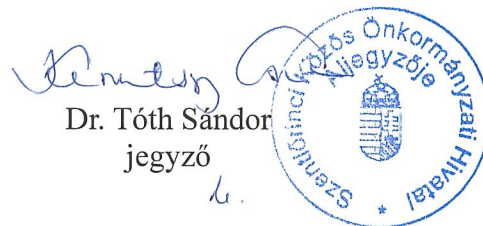 Dr. Tóth Sándor
jegyző
Szentlőrinci Közös Önkormányzati Hivatal
Aljegyzője
*